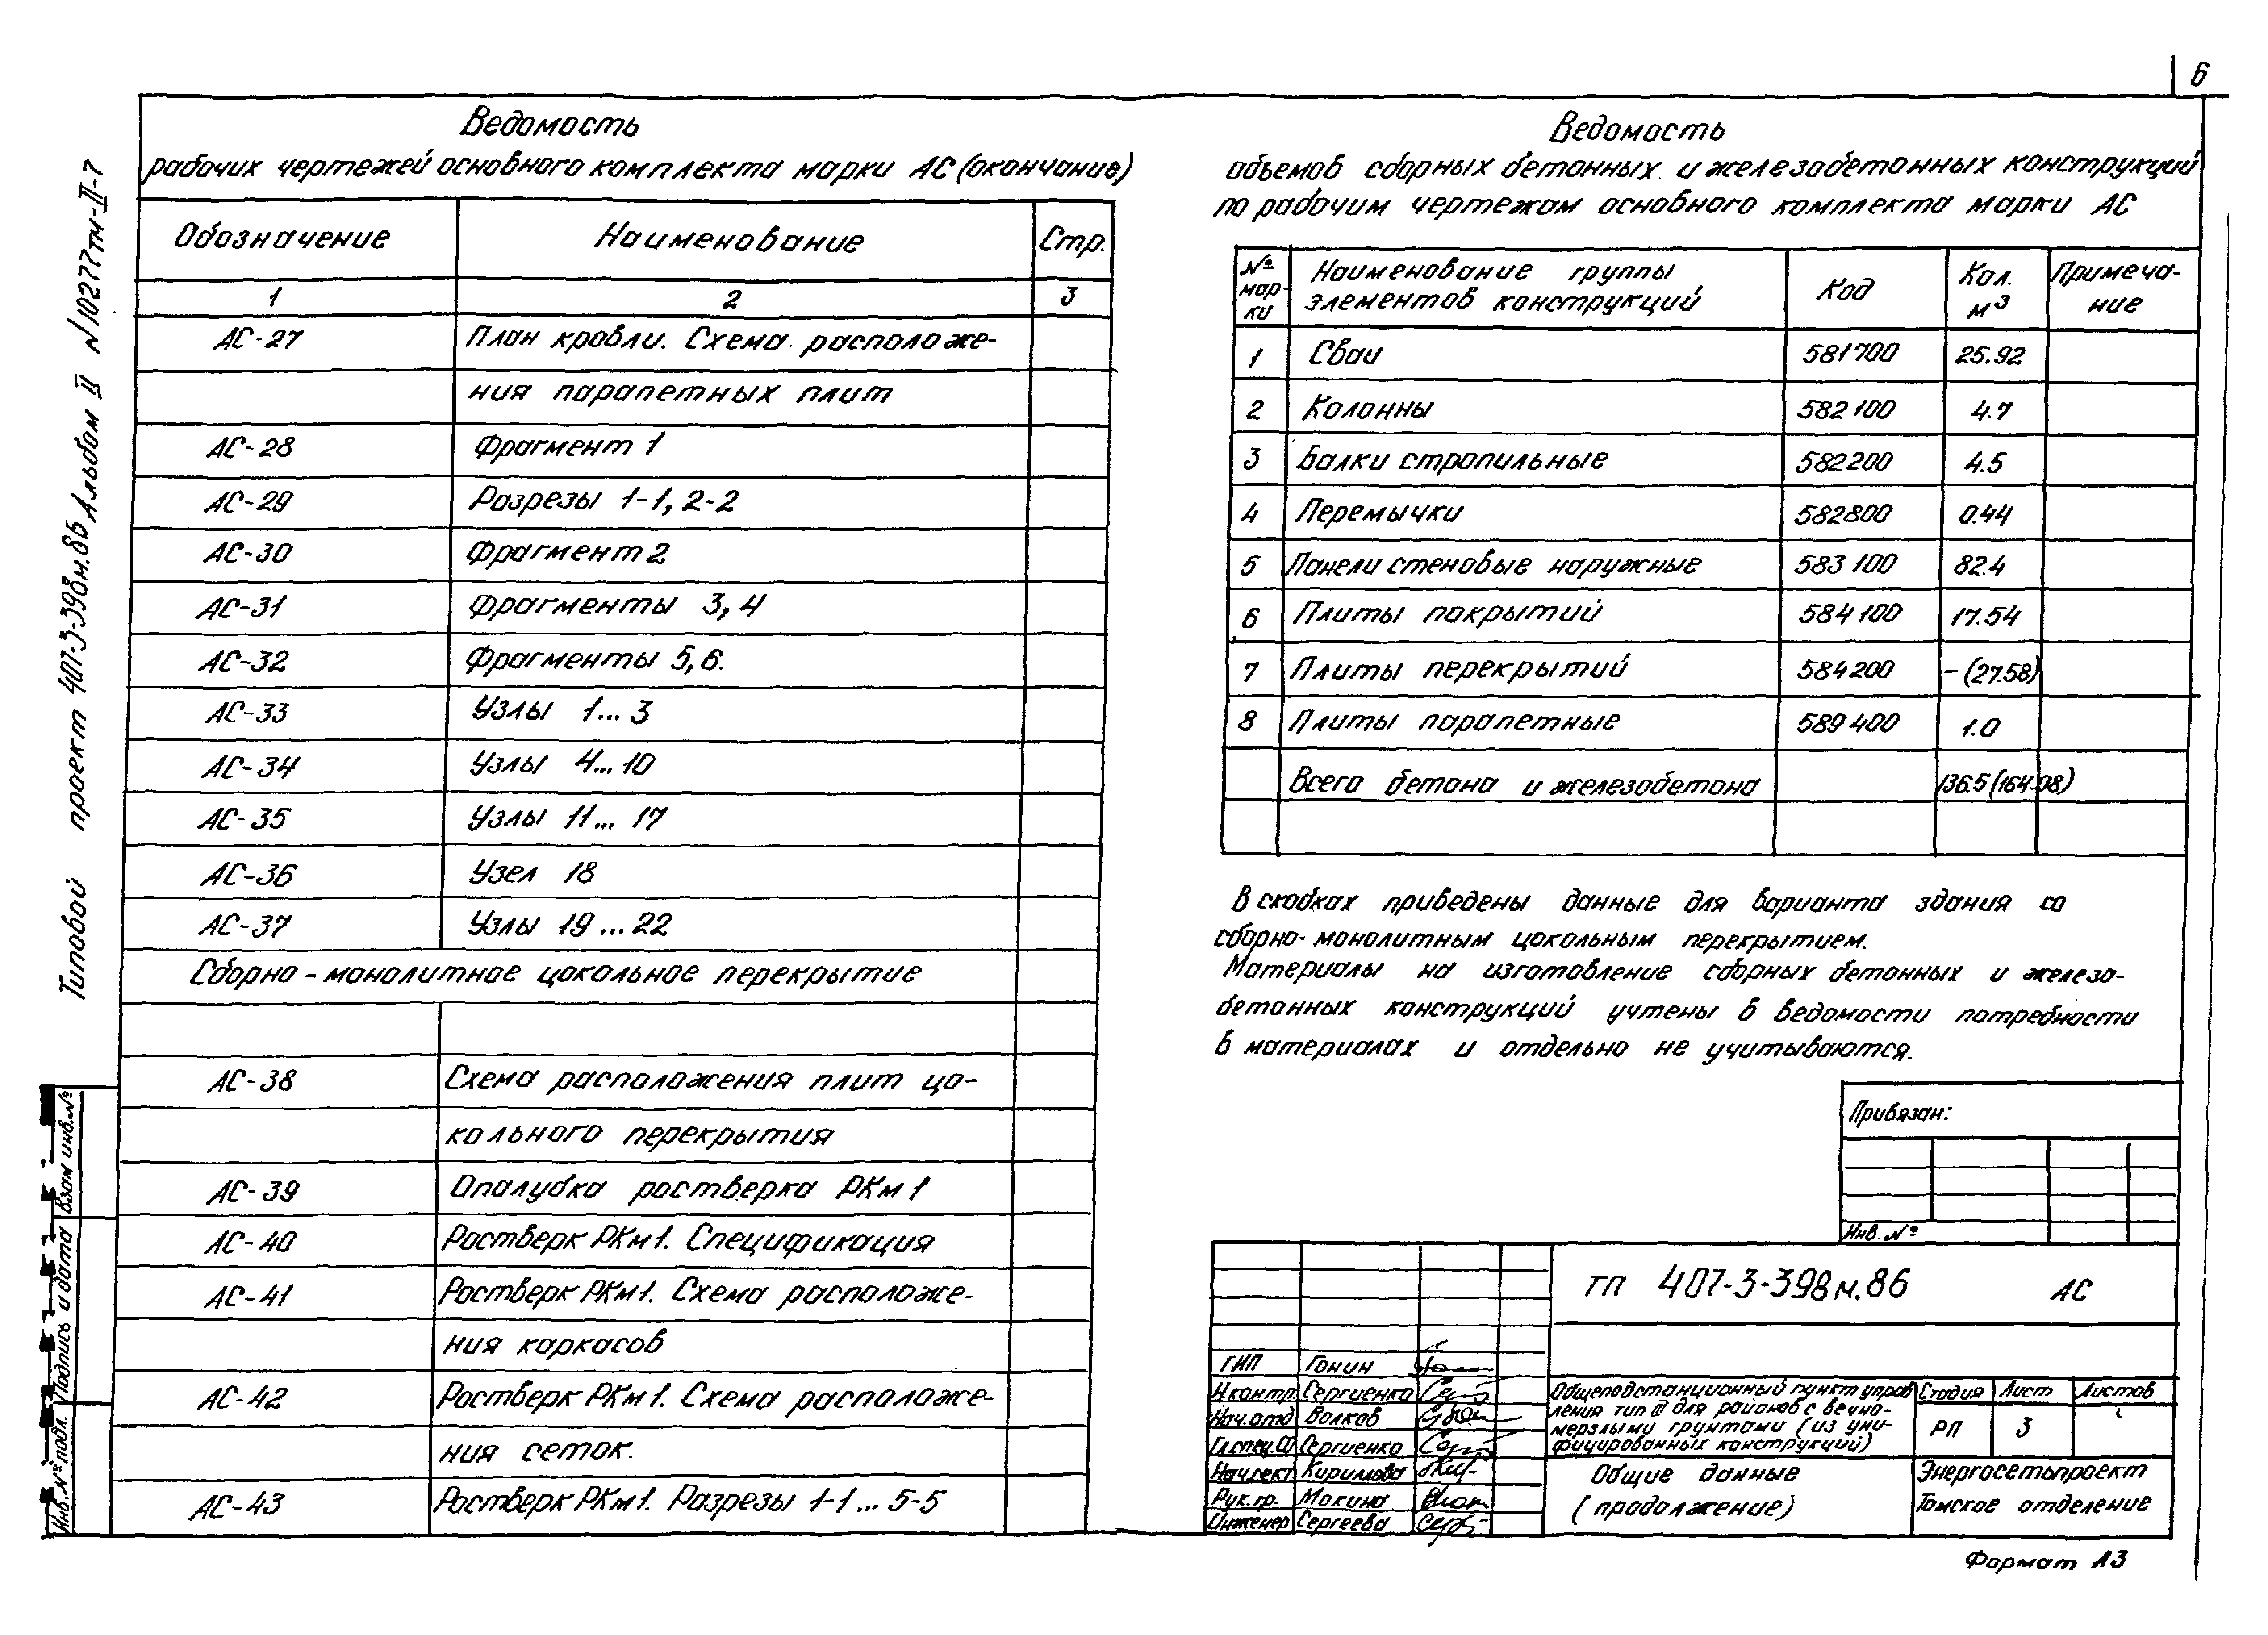 6
Ведомость
рабочих чертежей основного комплекта марки АС (окончание)
Обозначение Наименование Стр.
1 2 3
АС-27 План кровли. Схема расположе-
ния парапетных плит
АС-28 Фрагмент 1
АС-29 Разрезы 1-1, 2-2
АС-30 Фрагмент 2
АС-31 Фрагменты 3, 4
АС-32 Фрагменты 5, 6.
АС-33 Узлы 1...3
АС-34 Узлы 4...10
АС-35 Узлы 11...17
АС-36 Узел 18
АС-37 Узлы 19...22
Сборно-монолитное цокольное перекрытие
АС-38 Схема расположения плит цо-
кольного перекрытия
АС-39 Опалубка ростверка РКм1
АС-40 Ростверк РКм1. Спецификация
АС-41 Ростверк РКм1. Схема расположе-
ния каркасов
АС-42 Ростверк РКм1. Схема расположе-
ния сеток.
АС-43 Ростверк РКм1. Разрезы 1-1...5-5
Ведомость
объемов сборных бетонных и железобетонных конструкций
по рабочим чертежам основного комплекта марки АС
№ мар-ки Наименование группы элементов конструкций Код Кол. м3 Примеча-ние
1 Сваи 581700 25.92
2 Колонны 582100 4.7
3 Балки стропильные 582200 4.5
4 Перемычки 582800 0.44
5 Панели стеновые наружные 583100 82.4
6 Плиты покрытий 584100 17.54
7 Плиты перекрытий 584200 - (27.58)
8 Плиты парапетные 589400 1.0
Всего бетона и железобетона 136.5 (164.08)
В скобках приведены данные для варианта здания со
сборно-монолитным цокольным перекрытием.
Материалы на изготовление сборных бетонных и железо-
бетонных конструкций учтены в ведомости потребности
в материалах и отдельно не учитываются.
Привязан:
Инв.№
ТП 407-3-398м.86 АС
ГИП Гонин
Н.контр. Сергиенко
Нач.отд Волков
Гл.спец.СО Сергиенко
Нач.сект Киримова
Рук.гр. Мокина
Инженер Сергеева
Общеподстанционный пункт управ
ления тип III для районов с вечно-
мерзлыми грунтами (из уни-
фицированных конструкций)
Стадия Лист Листов
РП 3
Общие данные
(продолжение)
Энергосетьпроект
Томское отделение
Формат А3
Типовой проект 407-3-398м.86 Альбом II N10277тм-II-7
Взам инв.№
Подпись и дата
Инв.№ подл.